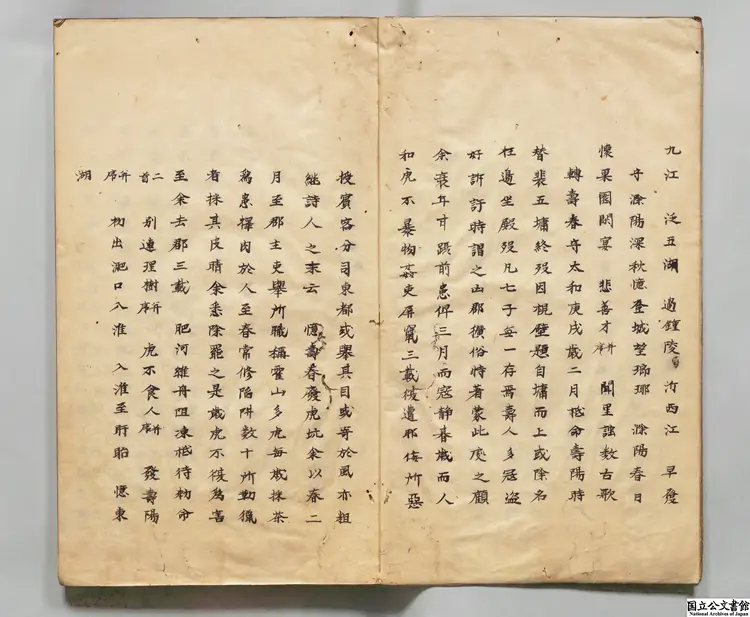 九江 泛五湖 過鍾陵 泝西江 早發
守滁陽深秋憶登城望瑯琊 滁陽春日
懷果園閑宴 悲善才并序 聞里謡效古歌
轉壽春守太和庚戌歲二月祗命壽陽時
替裴五墉終歿因視壁題自墉而上或除名
在邊坐殿歿凡七子每一存焉壽人多寇盜
好訴訐時謂之凶郡獷俗特著蒙此處之顧
余衰年甘躡前患俾三月而寇靜暮歲而人
和虎不暴物奸吏屏竄三載復遭邪佞所惡
授賓客分司東都或舉其目或寄於風亦粗
繼詩人之末云 憶壽春廢虎坑余以春二
月至郡主吏舉所職稱霍山多虎每歲採茶
為患擇肉於人至春常修陷阱數十所勒獵
者採其皮睛余悉除罷之是歲虎不復為害
至余去郡三載 肥河維舟阻凍祗待勑命
二首 別連理樹并序 虎不食人并序 發壽陽
并序 初出淝口入淮 入淮至盱眙 憶東
湖
国立公文書館
National Archives of Japan